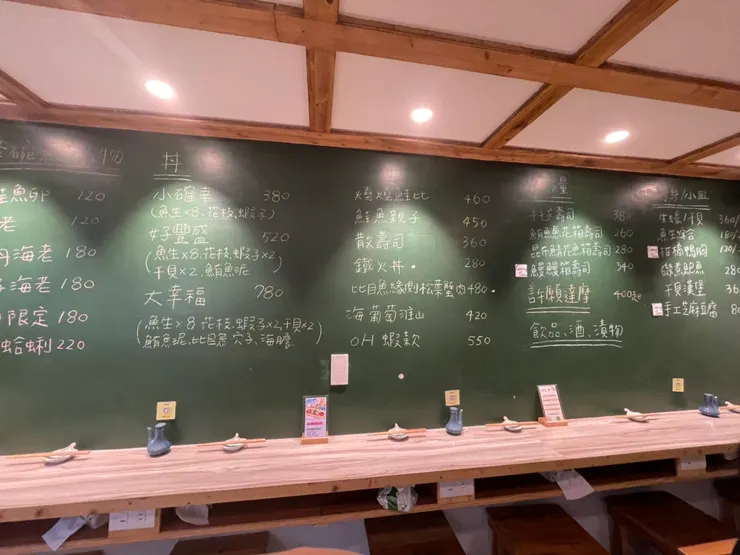 物
鮭魚卵 120
老 120
丹海老 180
海老 180
限定 180
蛤蜊 220
丼
小確幸 380
(魚生×8、花枝、蝦子)
好豐盛 520
(魚生×8、花枝、蝦子×2、
干貝×2、鮪魚泥)
大幸福 780
(魚生×8、花枝、蝦子×2、干貝×2、
鮪魚泥、比目魚、穴子、海膽)
燒燒鮭比 460
鮭魚親子 450
散壽司 360
鐵火丼 280
比目魚緣側松葉蟹肉 480
海葡萄淮山 420
OH 蝦款 550
手毬壽司 380
鮪魚蔥花箱壽司 260
昆布鯖魚箱壽司 280
鰻鰻箱壽司 340
許願達摩 400起
飲品、酒、漬物
小皿
干貝 360/
柑橘鴨胸 120/
鮑魚 280
干貝漢堡 360
手工芝麻豆腐 80